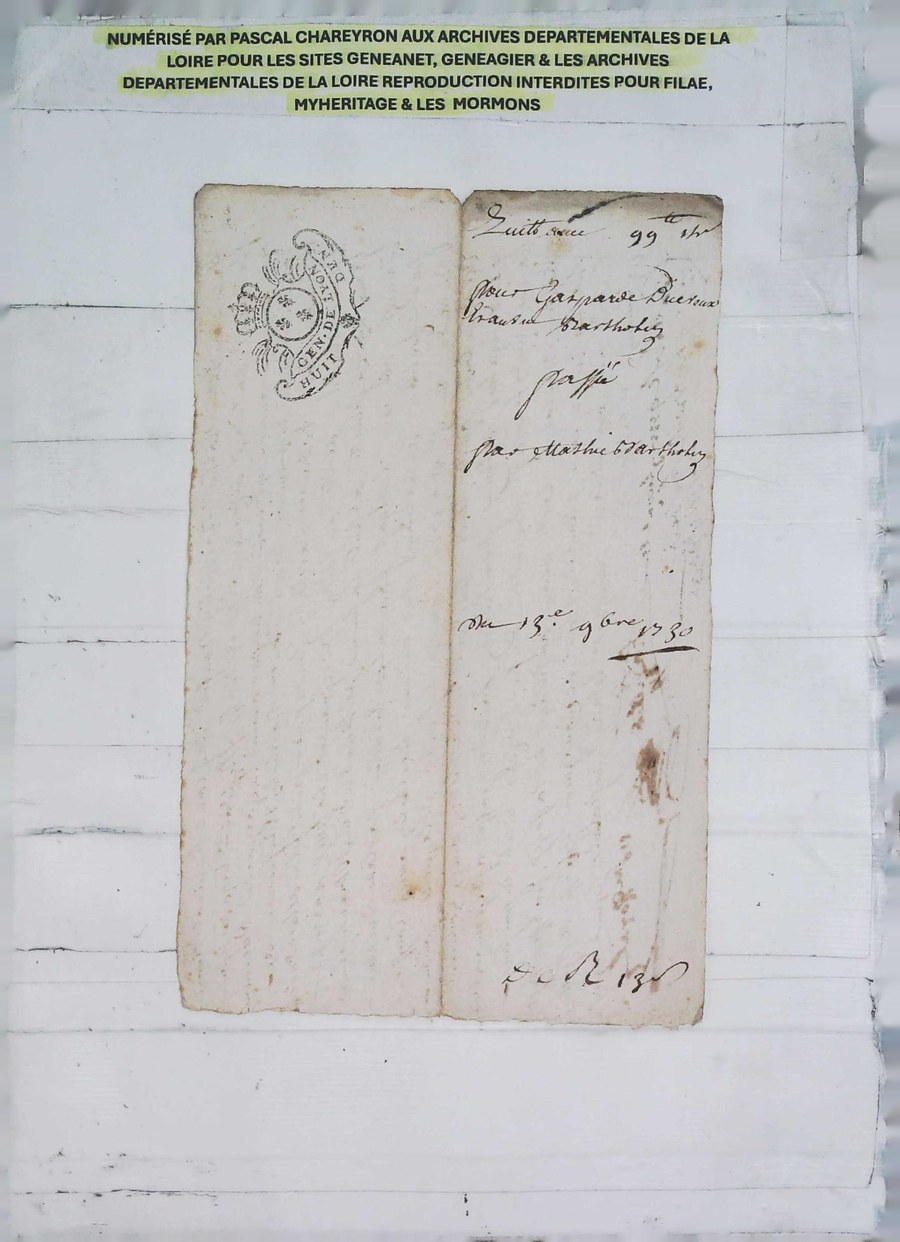 NUMÉRISÉ PAR PASCAL CHAREYRON AUX ARCHIVES DEPARTEMENTALES DE LA
LOIRE POUR LES SITES GENEANET, GENEAGIER & LES ARCHIVES
DEPARTEMENTALES DE LA LOIRE REPRODUCTION INTERDITES POUR FILAE,
MYHERITAGE & LES MORMONS
GEN. DE LYON
HUIT DEN
Quittance 99 tt
pour Gasparde Ducreux
Barthole
passé
par Mathie Barthole
Du 13e. 9bre 1730